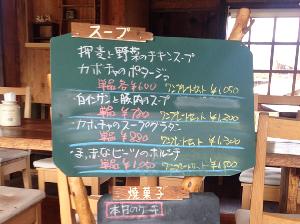 スープ
押麦と野菜のチキンスープ
カボチャのポタージュ
単品各¥600 ワンプレートセット ¥1,050
白インゲンと豚肉のスープ
単品 ¥780 ワンプレートセット ¥1,200
カボチャのスープグラタン
単品 ¥880 ワンプレートセット ¥1,300
まっ赤なビーツのボルシチ
単品 ¥1,050 ワンプレートセット ¥1,500
焼菓子
本日のケーキ